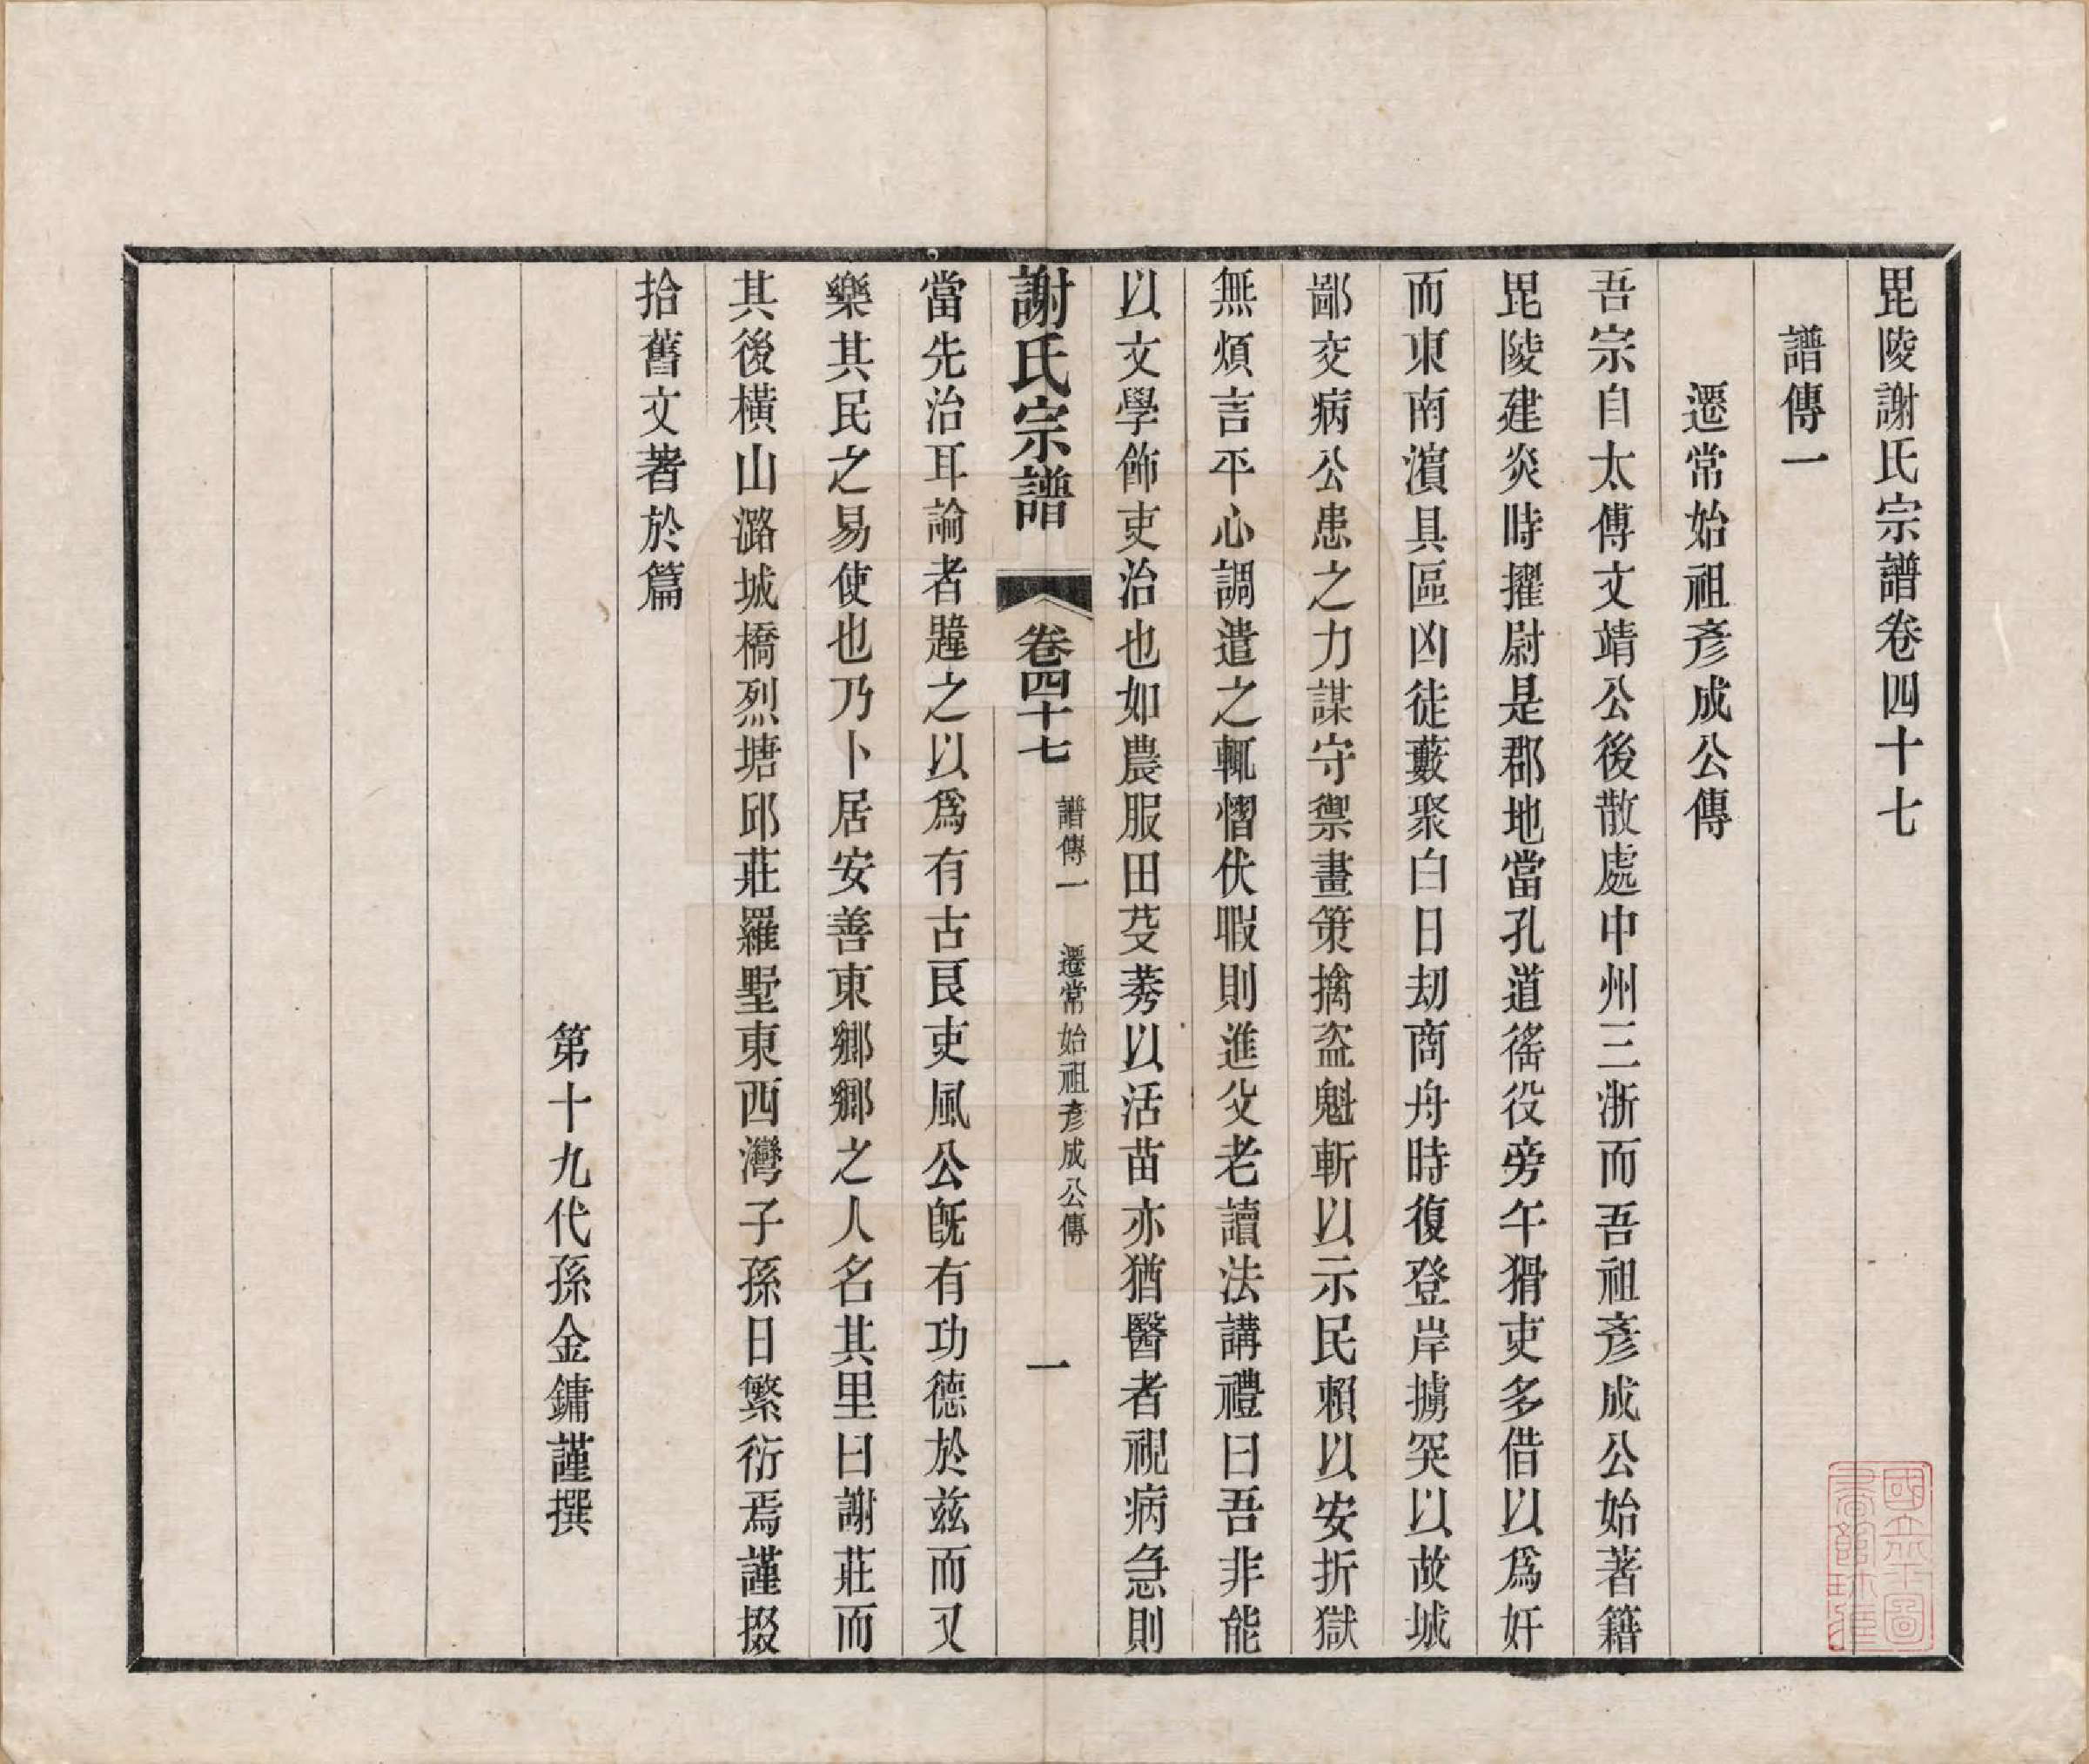 毘陵謝氏宗譜卷四十七
譜傳一
遷常始祖彥成公傳
吾宗自太傅文靖公後散處中州三浙而吾祖彥成公始著籍
毘陵建炎時擢尉是郡地當孔道徭役旁午猾吏多借以爲奸
而東南濵具區凶徒藪聚白日刧商舟時復登岸擄突以故城
鄙交病公患之力謀守禦畫策擒盜魁斬以示民賴以安折獄
無煩言平心調遣之輒慴伏暇則進父老讀法講禮曰吾非能
以文學飾吏治也如農服田芟莠以活苗亦猶醫者視病急則
謝氏宗譜 卷四十七 譜傳一 遷常始祖彥成公傳 一
當先治耳論者韙之以爲有古良吏風公旣有功德於兹而又
樂其民之易使也乃卜居安善東鄉鄉之人名其里曰謝莊而
其後橫山潞城橋烈塘邱莊羅墅東西灣子孫日繁衍焉謹掇
拾舊文著於篇
第十九代孫金鏞謹撰
國立北平圖
書館珍藏